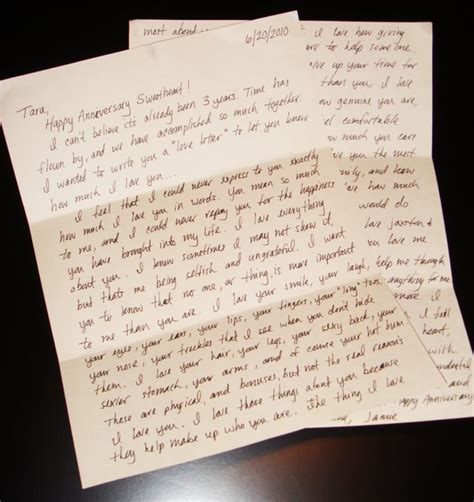 6/20/2010
Tara,
Happy Anniversary Sweetheart!
I can't believe its already been 3 years. Time has
flown by, and we have accomplished so much together.
I wanted to write you a "love letter" to let you know
how much I love you...
I feel that I could never express to you exactly
how much I love you in words. You mean so much
to me, and I could never repay you for the happiness
you have brought into my life. I love everything
about you. I know sometimes I may not show it,
but thats me being selfish and ungrateful. I want
you to know that no one, or thing, is more important
to me than you are. I love your smile, your laugh,
your eyes, your ears, your lips, your fingers, your "long" toes,
your nose, your freckles that I see when you don't hide
them. I love your hair, your legs, your sexy back, your
sexier stomach, your arms, and of course your hot bum.
Those are physical, and bonuses, but not the real reasons
I love you. I love those things about you because
they help make up who you are. The thing I love
most about
I love how giving
are to help someone
give up your time for
than you. I love
how genuine you are,
feel comfortable
how much you care
you the most
and know
how much
would do
love jaxston &
you love me.
help me through
anything for me
more. I
I feel
heart,
with
and
Happy Anniversary
Jamie